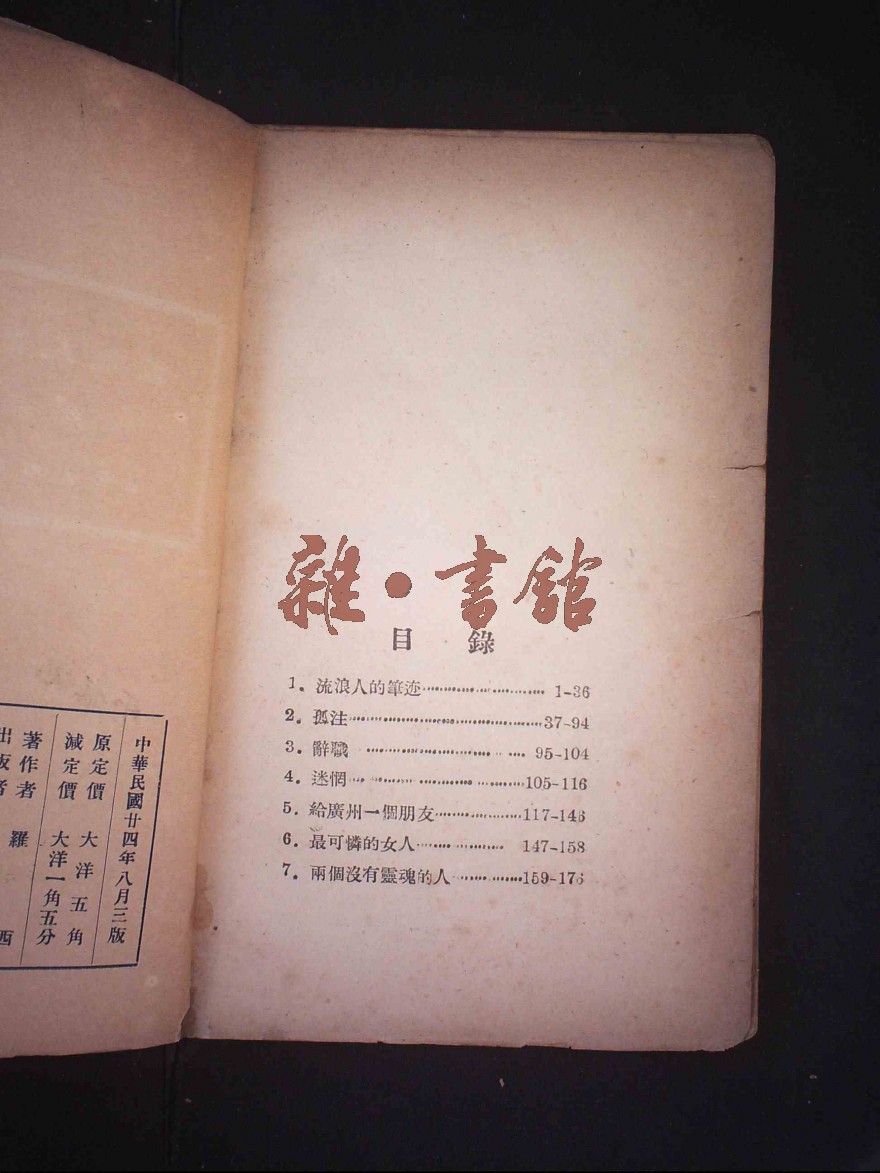 雜•書舘
目錄
1. 流浪人的筆迹 1-36
2. 孤注 37-94
3. 辭職 95-104
4. 迷惘 105-116
5. 給廣州一個朋友 117-146
6. 最可憐的女人 147-158
7. 兩個沒有靈魂的人 159-176
中華民國廿四年八月三版
原定價 大洋五角
減定價 大洋一角五分
著作者 羅西
出版者